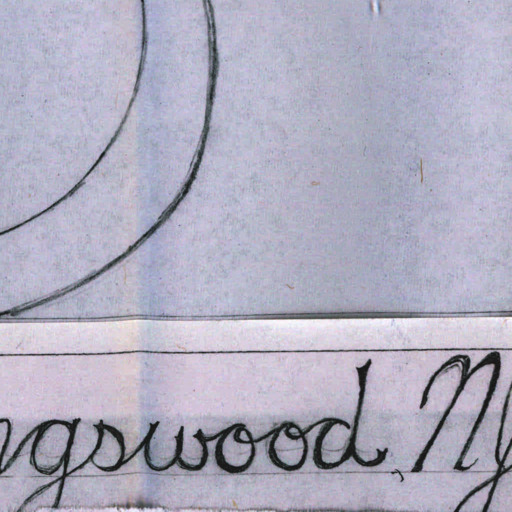 ngswood, NJ